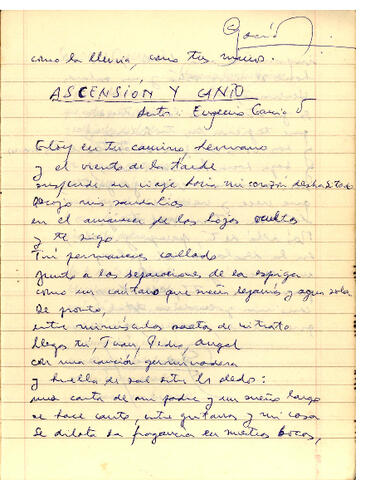 García
como la lluvia, como tus manos.
ASCENSION Y CANTO
Autor: Eugenio García
Estoy en tu camino, hermano
y el viento de la tarde
suspende su viaje hacia mi corazón deshabitado
Recojo mis sandalias
en el amanecer de las hojas ocultas
y te sigo
Tú permaneces callado
junto a las separaciones de la espiga
como un cántaro que sueña lejanías y agua sola
De pronto,
entre minúsculas de nitrato
llegas tú, Juan, Pedro, Angel
con una canción germinadora
y huella de sal entre los dedos:
una carta de mi padre y un sueño largo
se hace canto, entre guitarras y mi casa
se dilata su fragancia en nuestras bocas,